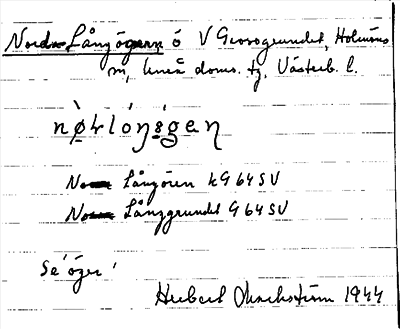 Norra Långögern ö V Grossgrundet, Holmöns
m, Umeå doms. tg, Västerb. l.
nø̀rlóŋø̀gen
Norra Långören kG 64 SV
Norra Långgrundet G 64 SV
Se 'öger'
Herbert 1944